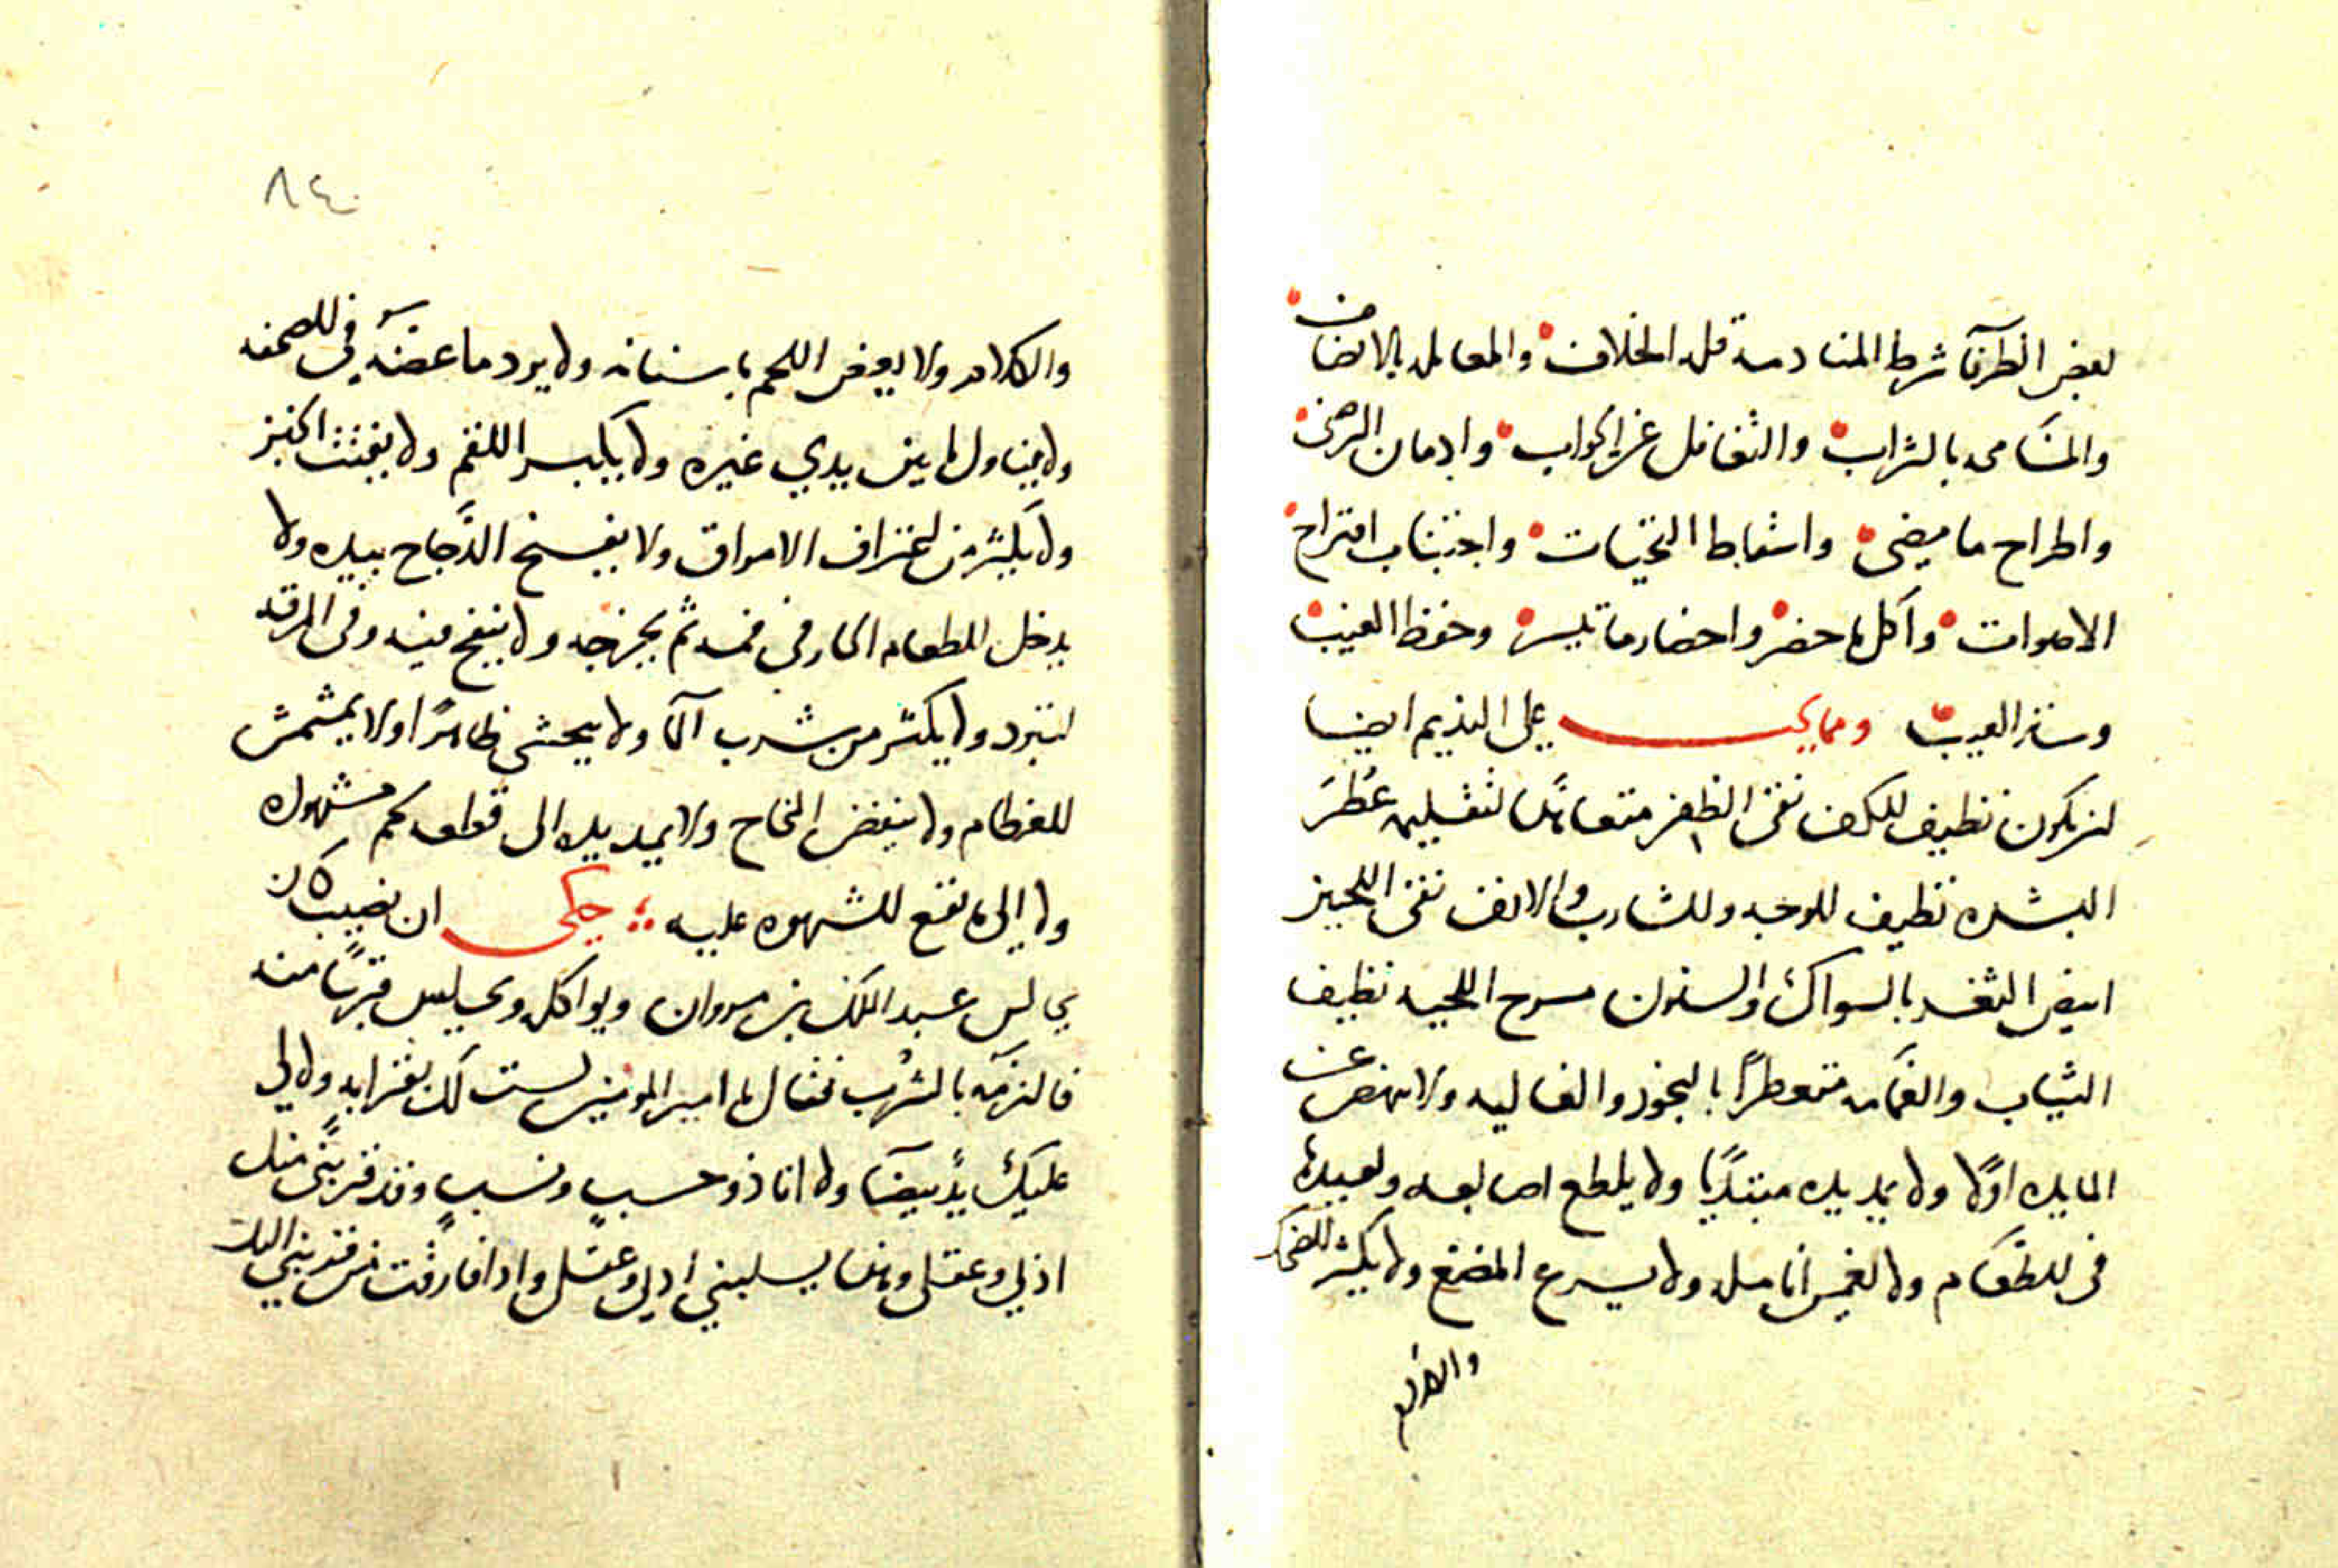 بعض الظرفآ شرط المنادمة قلة الخلاف والمعاملة بالانصاف
والمسامحة بالشراب والتغافل عن الجواب وادمان الرضى
واطراح ما مضى واسقاط التحيات واجتناب اقتراح
الاصوات وأكل ما حضر واحضار ما تيسر وحفظ الغيب
وستر العيب ومما يجب على النديم ايضا
ان يكون نظيف الكف نقى الظفر متعاهدا لتقليمه عَطِرَ
البشره نظيف الوجه والشارب والانف نقى الجبين
ابيض الثغر بالسواك والسنون مسرح اللحيه نظيف
الثياب والعمامه متعطرًا بالبخور والغاليه ولا
المايده اوّلا ولا يمد يده مبتديًا ولا يلطع اصابعه ويعيدها
فى الطعام ولا يغمس انامله ولا يسرع المضغ ولا يكثر الضحك
والكلام
٨٤
والكلام ولا يعض اللحم باسنانه ولا يرد ما عضّه فى الصحفه
ولا يتناول ما بين يدي غيره ولا يكبر اللقم ولا يفتت الخبز
ولا يكثر من اغتراف الامراق ولا يفسخ الدّجاج بيده ولا
يدخل الطعام الحار فى فمه ثم يخرجه ولا ينفخ فيه وفى المرقه
لتبرد ولا يكثر من شرب المآ ولا يتجشى ظاهرًا ولا يمشمش
العظام ولا ينفض المخاخ ولا يمد يده الى مشهوره
ولا الى ما تقع الشهوه عليه حكى ان نصيب كان
يجالس عبد الملك بن مروان ويواكله ويجلس قريبًا منه
فالزمه بالشُرب فقال يا امير المومنين لست لك بقرابه ولا لي
عليك يدٌ بيضآ ولا انا ذو حسبٍ ونسبٍ وقد قربنى منك
ادبي وعقلى وهذا يسلبني ادبي وعقلى واذا فارقت من قربني اليك